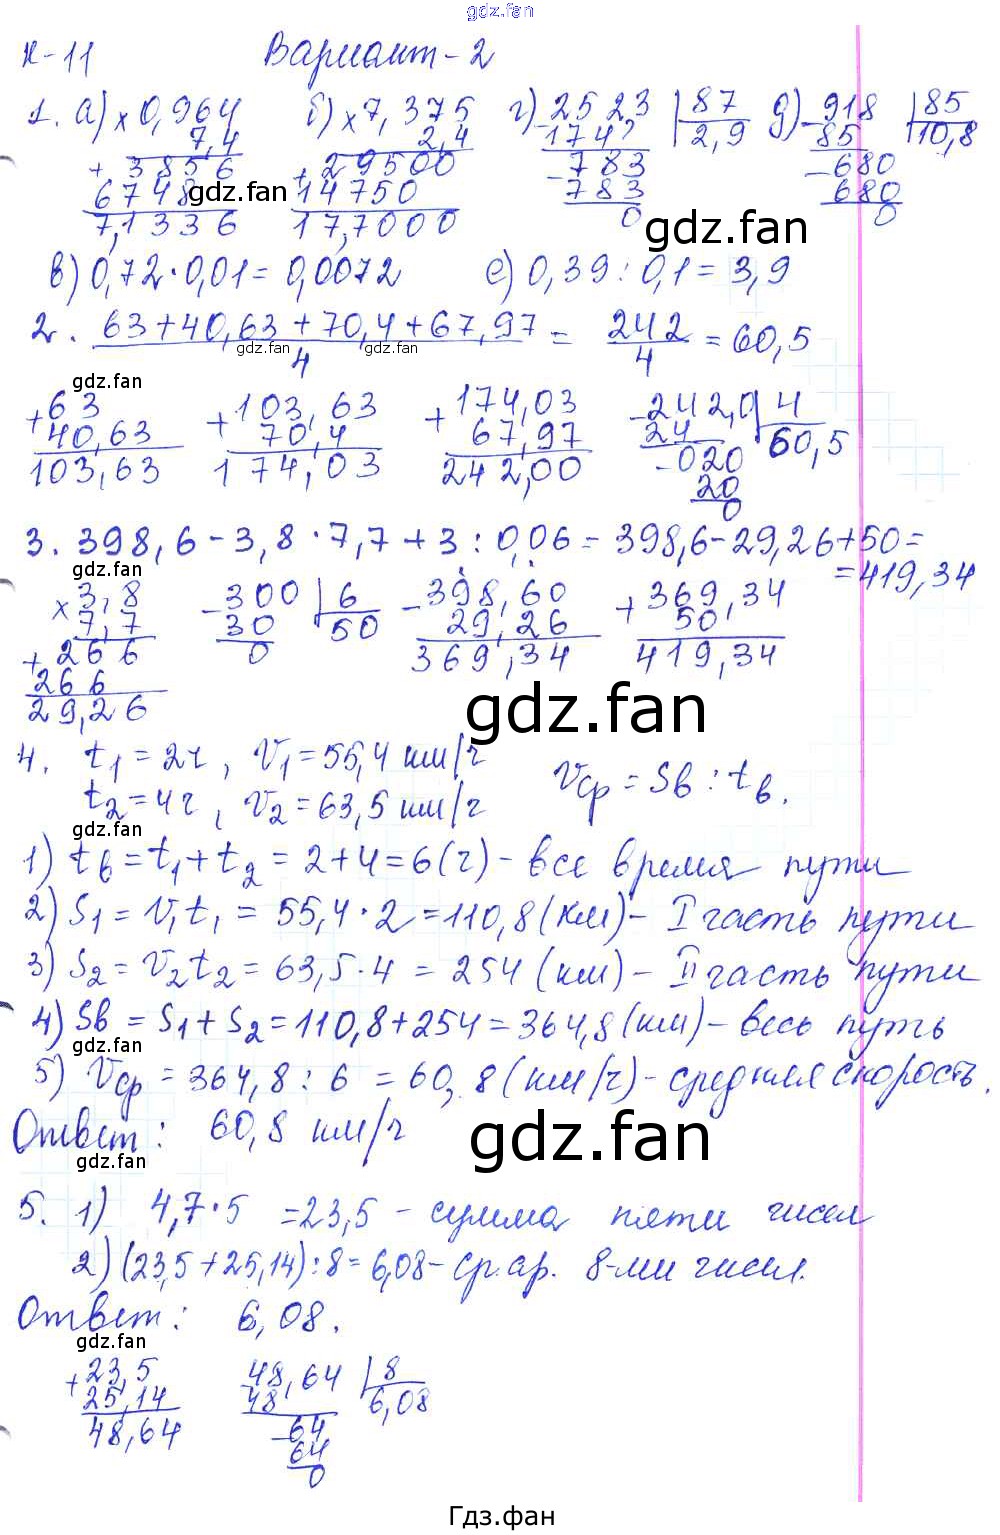 gdz.fan
К-11 Вариант-2
1. а) × 0,964 б) × 7,375 г) 2523 | 87 д) 918 | 85
7,4 2,4 174 2,9 85 10,8
+ 3856 + 29500 - 783 - 680
6748 14750 783 680
7,1336 17,7000 0 0
gdz.fan gdz.fan gdz.fan
в) 0,72·0,01=0,0072 е) 0,39:0,1=3,9
2. (63+40,63+70,4+67,97)/4 = 242/4 = 60,5
gdz.fan gdz.fan
gdz.fan
+ 63 + 103,63 + 174,03 - 242,0 | 4
40,63 70,4 67,97 24 60,5
103,63 174,03 242,00 - 020
20
0
3. 398,6-3,8·7,7+3:0,06=398,6-29,26+50=
=419,34
gdz.fan
× 3,8 - 300 | 6 - 398,60 + 369,34
7,7 30 50 29,26 50
+ 266 0 369,34 419,34
266
29,26
gdz.fan
4. t1=2ч, V1=55,4 км/ч
t2=4ч, V2=63,5 км/ч Vср=Sв:tв.
gdz.fan
1) tв=t1+t2=2+4=6(ч)-все время пути
2) S1=V1t1=55,4·2=110,8(км)-I часть пути
3) S2=V2t2=63,5·4=254(км)-II часть пути
4) Sв=S1+S2=110,8+254=364,8(км)-весь путь
gdz.fan
5) Vср=364,8:6=60,8(км/ч)-средняя скорость.
Ответ: 60,8 км/ч
gdz.fan
gdz.fan
5. 1) 4,7·5=23,5-сумма пяти чисел
2) (23,5+25,14):8=6,08-ср.ар. 8-ми чисел.
Ответ: 6,08.
gdz.fan
+ 23,5 48,64 | 8
25,14 48 6,08
48,64 - 64
64
0
Гдз.фан